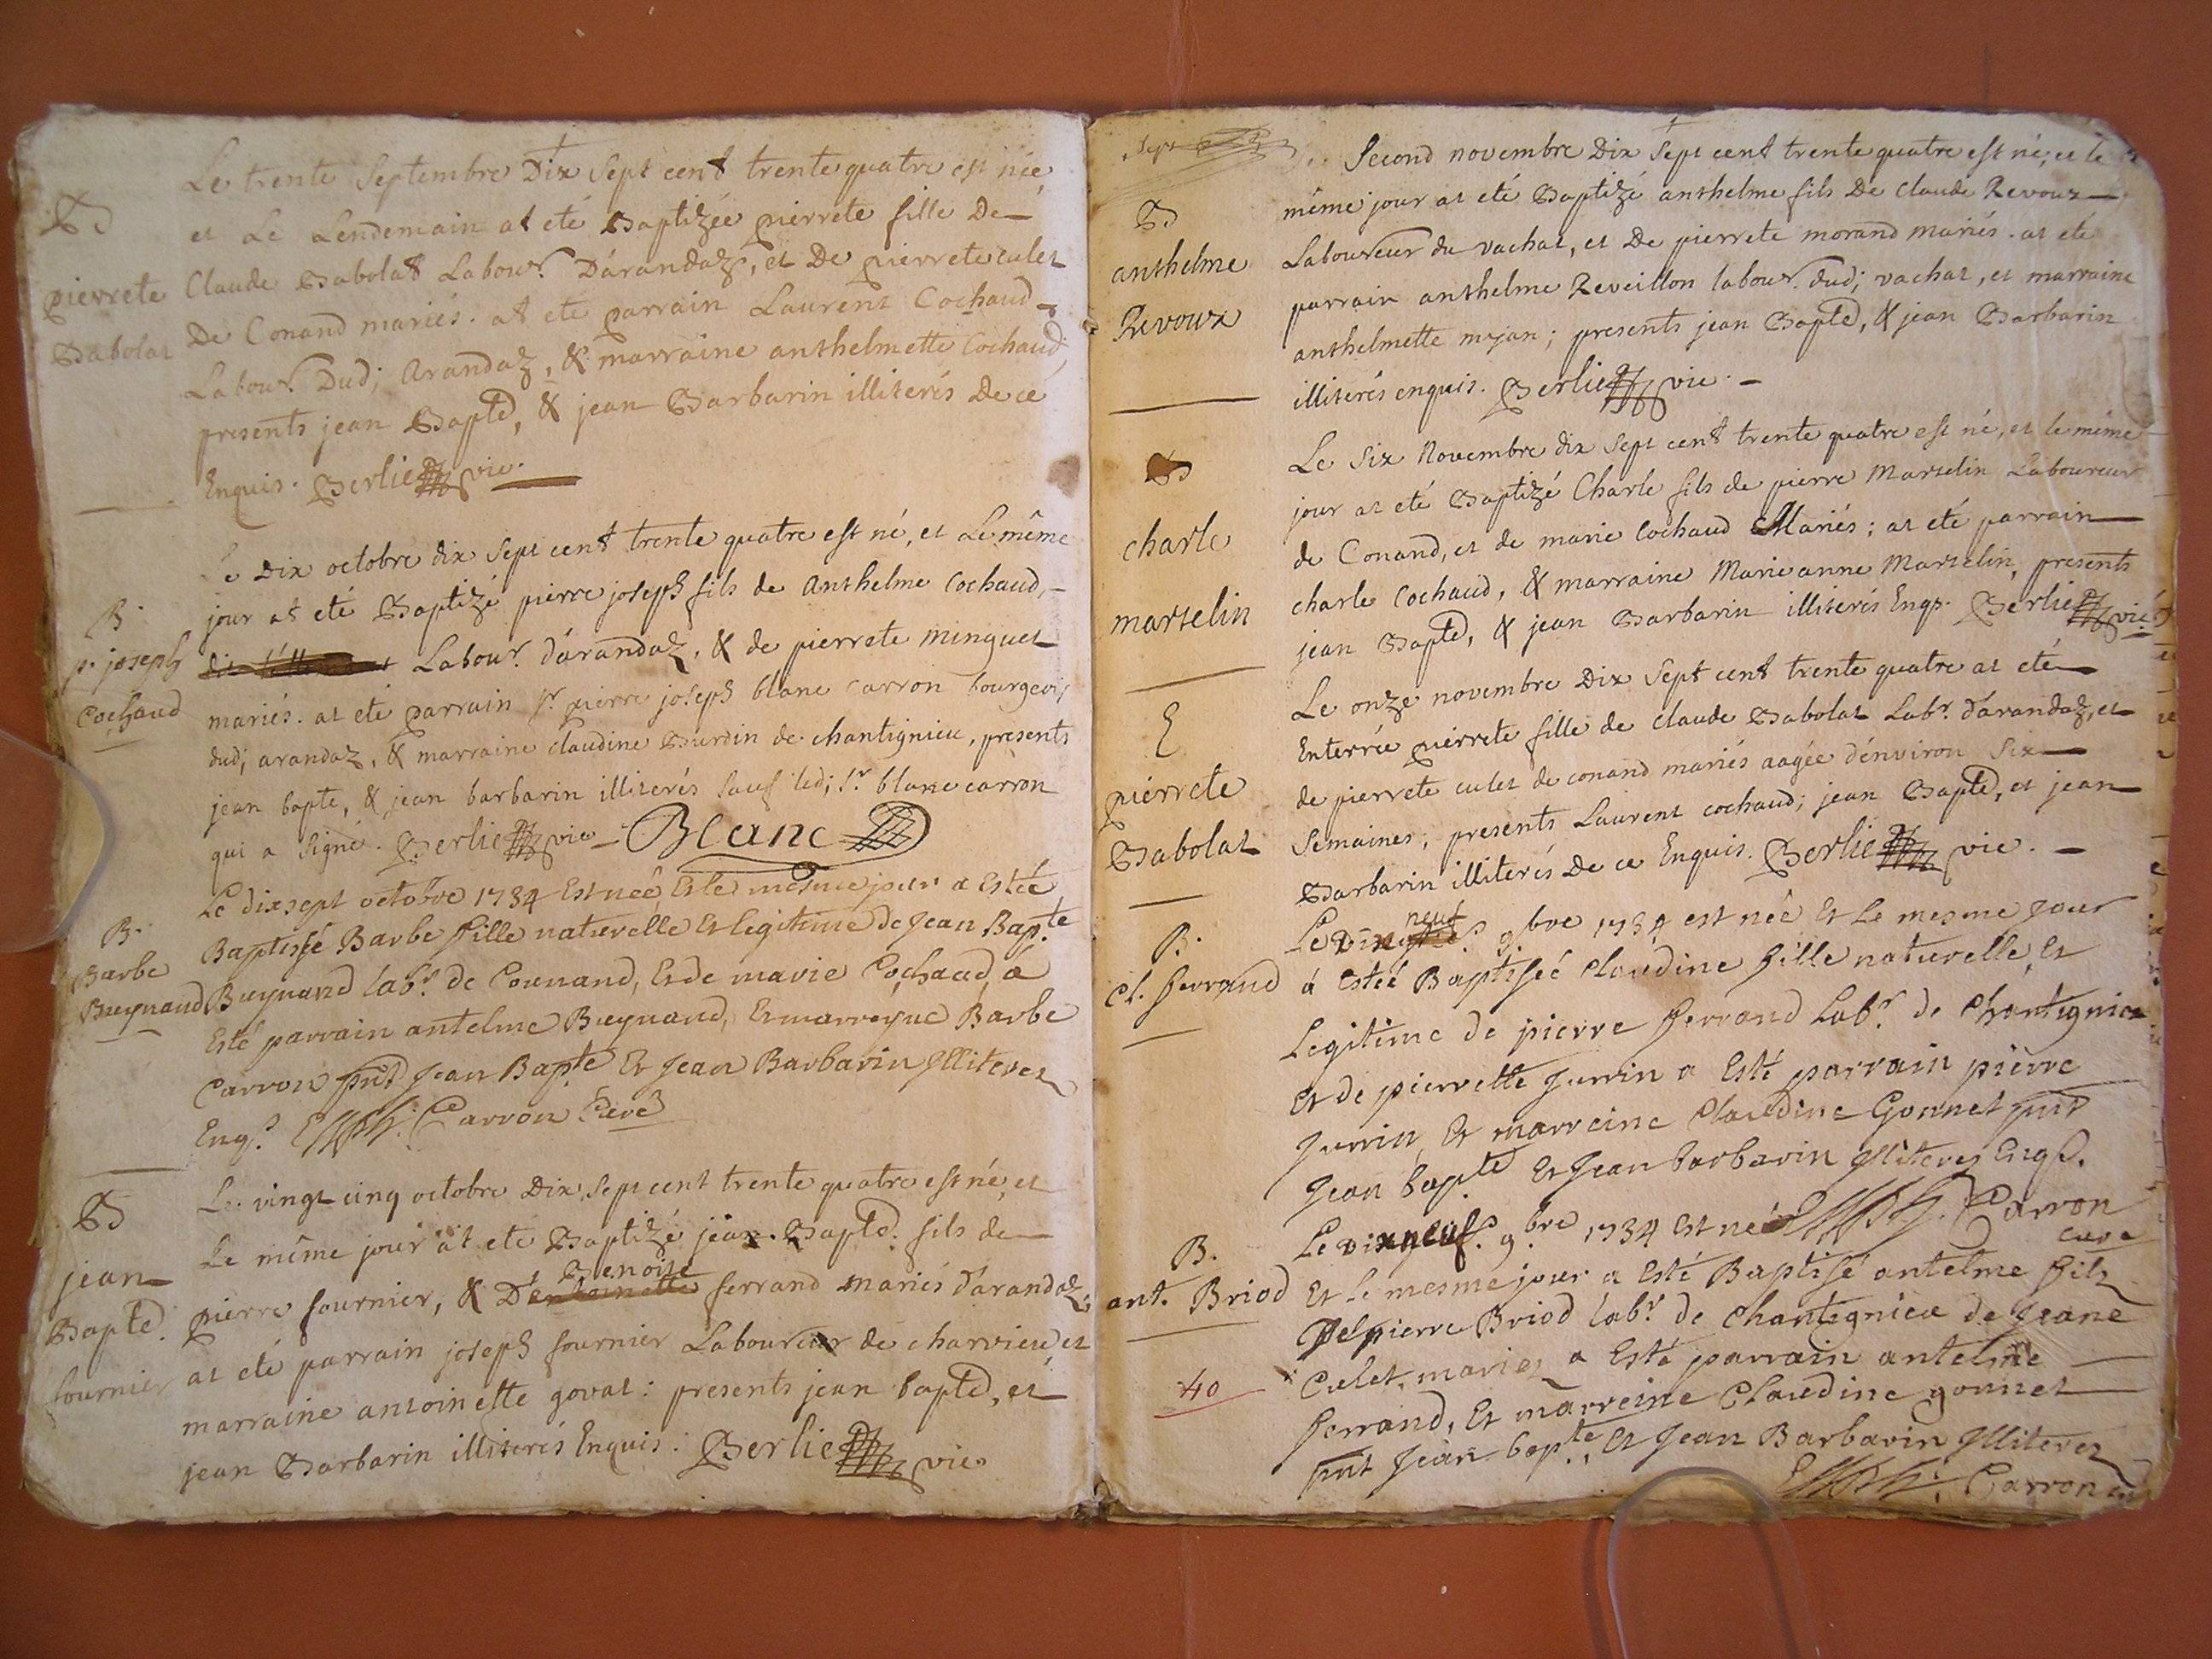 Le trente Septembre Dix Sept cent trente quatre est née,
B et Le Lendemain at eté Baptizée pierrete fille De
pierrete Claude Babolat Labour. D'arandaz, et De pierrete culet
Babolat De Conand mariés. at eté parrain Laurent Cochaud
Labour. Dud; Arandaz, & marraine anthelmette Cochaud,
presents jean Bapte, & jean Barbarin illiterés De ce
Enquis. Berlie vic.
Le Dix octobre dix Sept cent trente quatre est né, et Le même
B. jour at eté Baptizé pierre joseph fils de Anthelme Cochaud,
p. joseph Labour. d'arandaz, & de pierrete minguet
Cochaud mariés. at eté parrain Sr. pierre joseph blanc carron bourgeois
dud; arandaz, & marraine claudine Burdin de chantignieu, presents
jean bapte, & jean barbarin illiterés Sauf led; Sr. blanc carron
qui a Signé. Berlie vic. Blanc
Le dixsept octobre 1734 Est née, Et le mesme jour a Estée
B. Baptissé Barbe fille naturelle Et legitime de Jean Bapte
Barbe Buynand Buynand labr. de Counand, Et de marie Cochaud, a
Esté parrain antelme Buynand, Et marreyne Barbe
Carron pnts Jean Bapte Et Jean Barbarin Illiterez
Enqs. Carron Curé
Le vingt cinq octobre Dix Sept cent trente quatre est né, et
B Le même jour at eté Baptizé jean Bapte. fils de
jean Benoite
Bapte. pierre fournier, & D'antoinette ferrand mariés d'arandaz;
fournier at eté parrain joseph fournier Laboureur de charvieu, et
marraine antoinette govat: presents jean bapte, et
jean Barbarin illiterés Enquis. Berlie vic.
Sept
Second novembre Dix Sept cent trente quatre est né, et le
B même jour at eté Baptizé anthelme fils De claude Revoux
anthelme Laboureur du vachat, et De pierrete morand mariés. at eté
Revoux parrain anthelme Reveillon labour. dud; vachat, et marraine
anthelmette mjan; presents jean Bapte, & jean Barbarin
illiterés enquis. Berlie vic.
B Le Six Novembre dix Sept cent trente quatre est né, et le même
jour at eté Baptizé Charle fils de pierre Martelin Laboureur
charle de Conand, et de marie Cochaud Mariés; at eté parrain
martelin charle Cochaud, & marraine Marie anne Martelin, presents
jean Bapte, & jean Barbarin illiterés Enqs. Berlie vic.
Le onze novembre Dix Sept cent trente quatre at eté
E Enterrée pierrete fille de claude Babolat Labr. d'arandaz, et
pierrete de pierrete culet de conand mariés aagée d'environ Six
Babolat Semaines; presents Laurent cochaud; jean Bapte, et jean
Barbarin illiterés De ce Enquis. Berlie vic.
neuf
B. Le 9bre 1734 est née Et Le mesme jour
Cl. ferrand à Estéé Baptisséé Claudine fille naturelle, Et
Legitime de pierre ferrand Labr. de Chantignieu
Et de pierrette Jurrin a Esté parrain pierre
Jurrin, Et marreine Claudine Gonnet pnts
Jean bapte Et Jean barbarin Illiterez Enqs.
Carron
curé
B. Le dixneuf 9bre 1734 Est né
ant. Briod Et le mesme jour a Esté Baptisé antelme fils
pierre Briod labr. de Chantignieu de Jeane
40 Culet, mariez a Esté parrain antelme
ferrand, Et marreine Claudine gonnet
pnts Jean bapte, Et Jean Barbarin Illiterez
Carron